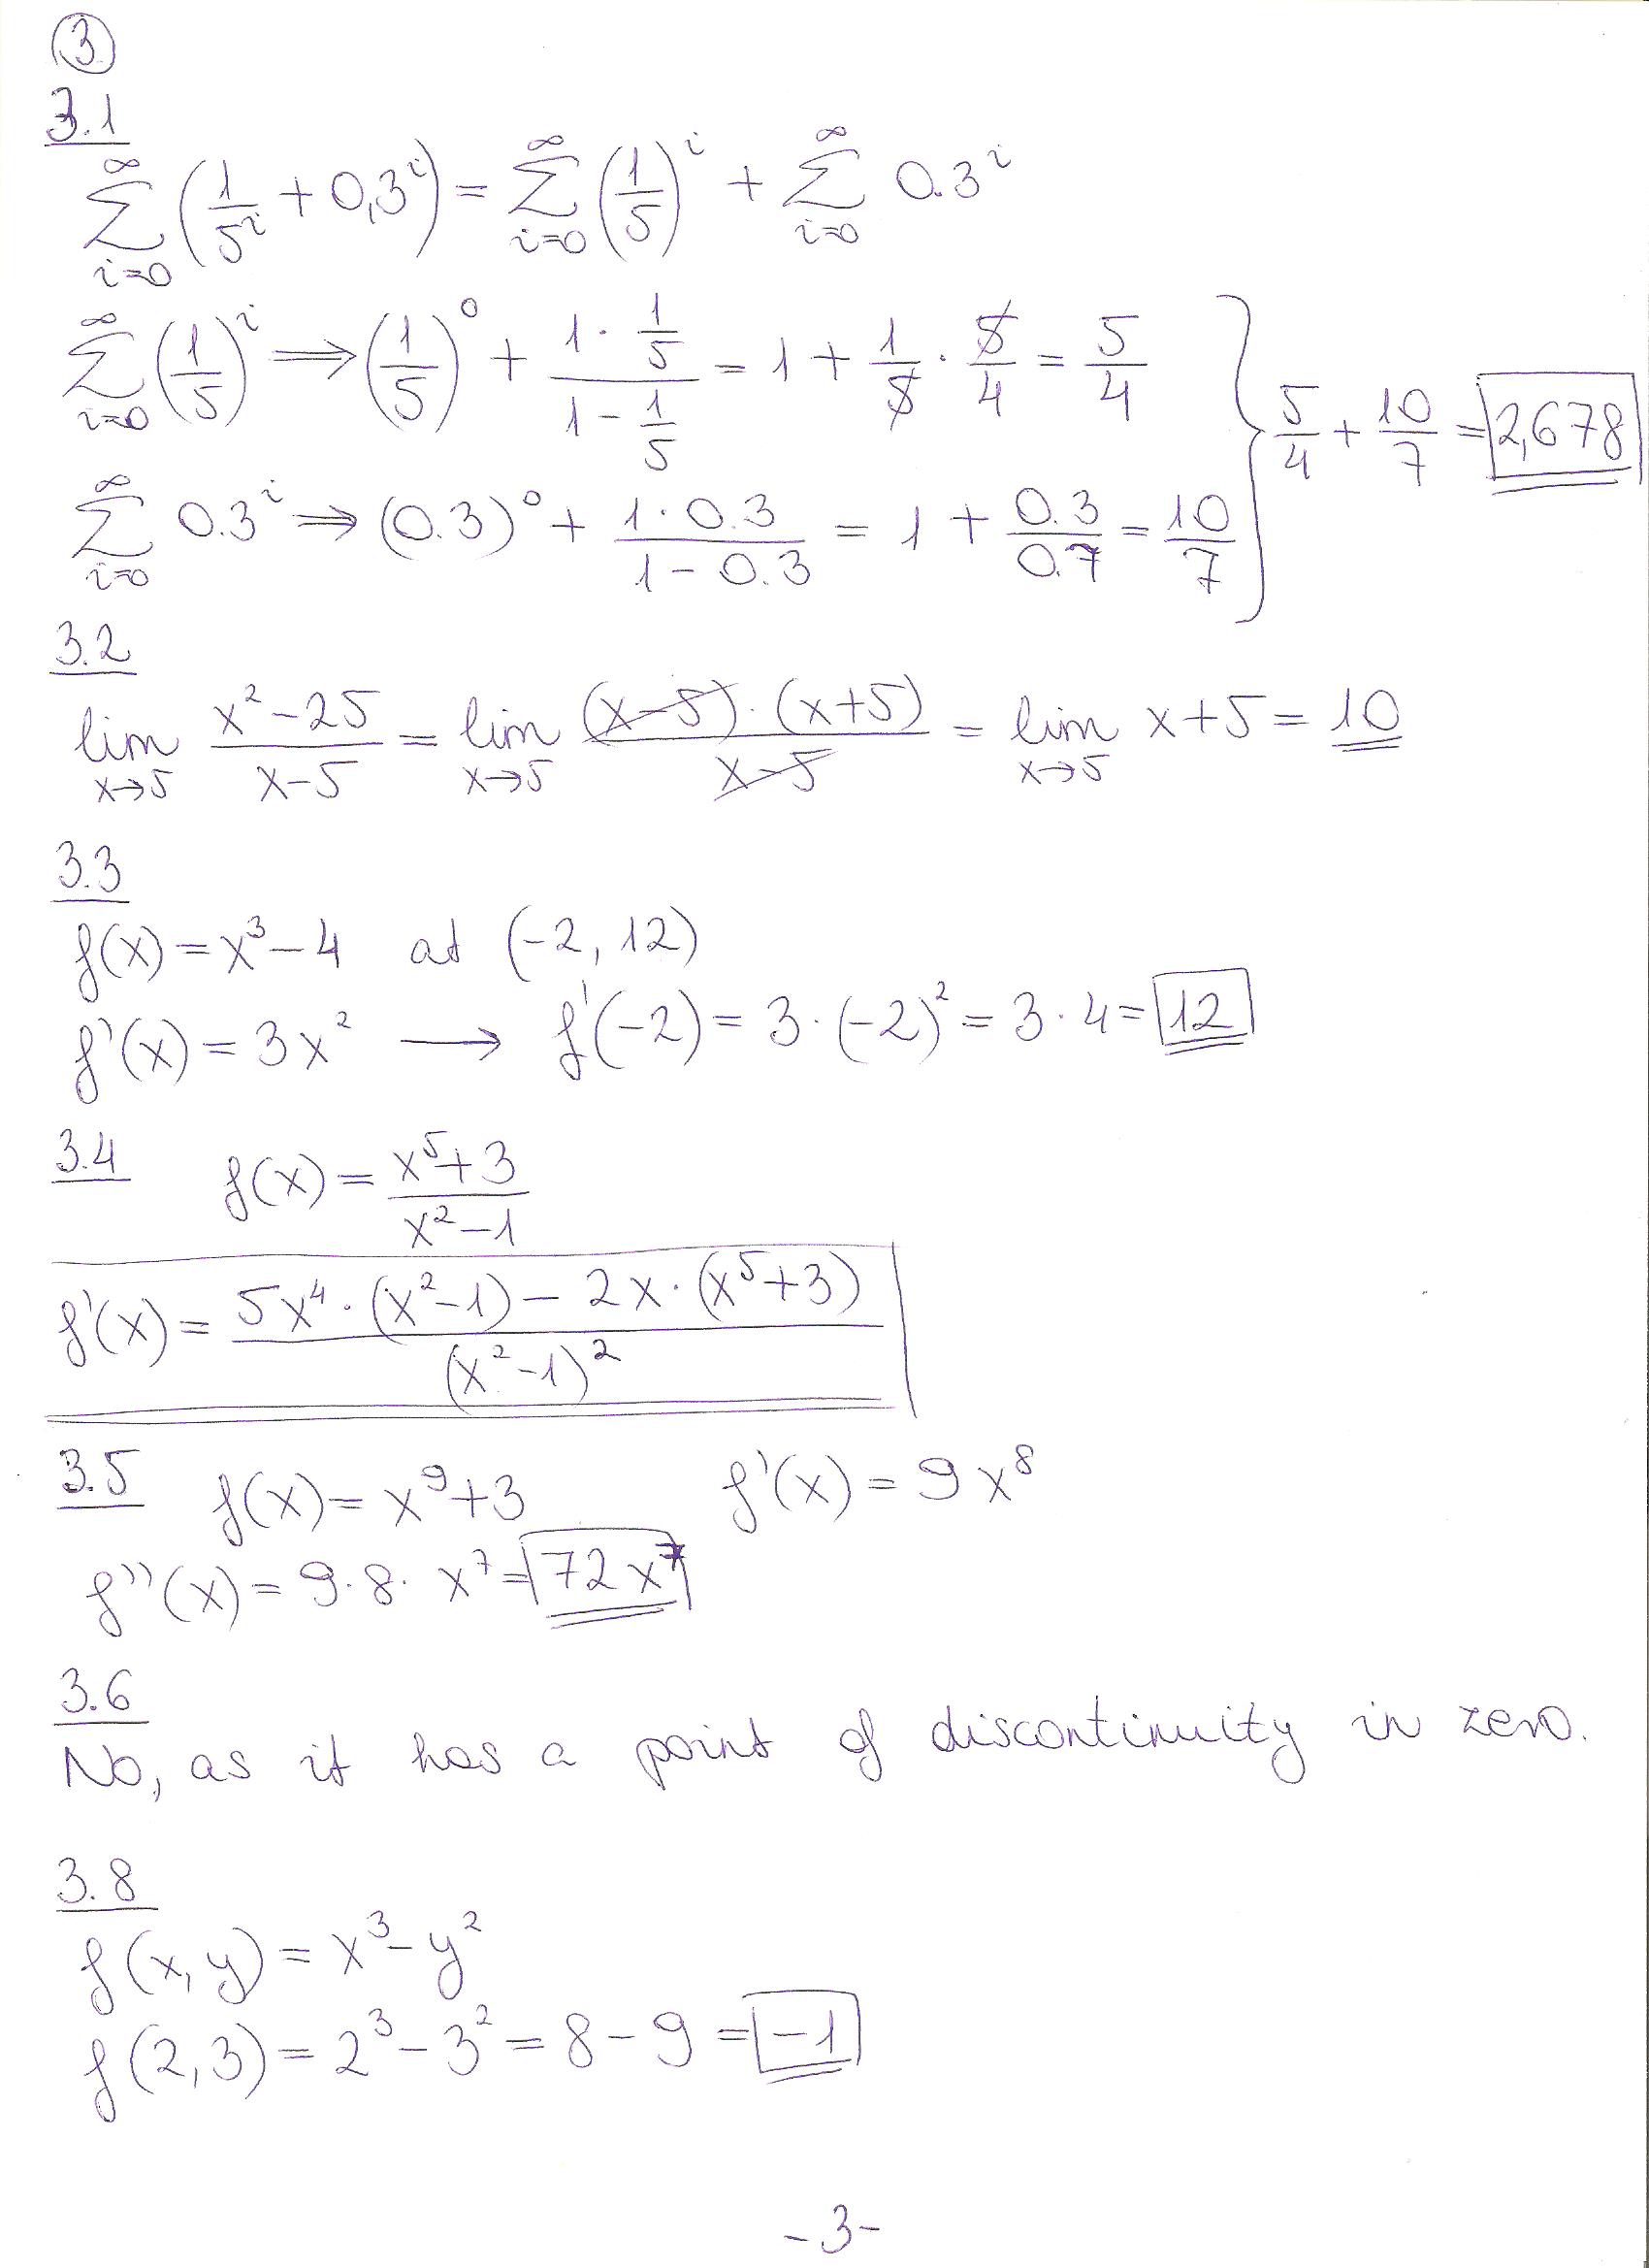 3
3.1
∑_{i=0}^{∞} (1/5^i + 0,3^i) = ∑_{i=0}^{∞} (1/5)^i + ∑_{i=0}^{∞} 0.3^i
∑_{i=0}^{∞} (1/5)^i ⟹ (1/5)^0 + (1 · 1/5)/(1 - 1/5) = 1 + 1/5 · 5/4 = 5/4
∑_{i=0}^{∞} 0.3^i ⟹ (0.3)^0 + (1 · 0.3)/(1 - 0.3) = 1 + 0.3/0.7 = 10/7
} 5/4 + 10/7 = 2,678
3.2
lim_{x→5} (x^2 - 25)/(x - 5) = lim_{x→5} ((x - 5) · (x + 5))/(x - 5) = lim_{x→5} x + 5 = 10
3.3
f(x) = x^3 - 4 at (-2, 12)
f'(x) = 3x^2 ⟶ f'(-2) = 3 · (-2)^2 = 3 · 4 = 12
3.4 f(x) = (x^5 + 3)/(x^2 - 1)
f'(x) = (5x^4 · (x^2 - 1) - 2x · (x^5 + 3))/(x^2 - 1)^2
3.5 f(x) = x^9 + 3 f'(x) = 9x^8
f''(x) = 9 · 8 · x^7 = 72x^7
3.6
No, as it has a point of discontinuity in zero.
3.8
f(x, y) = x^3 - y^2
f(2, 3) = 2^3 - 3^2 = 8 - 9 = -1
- 3 -